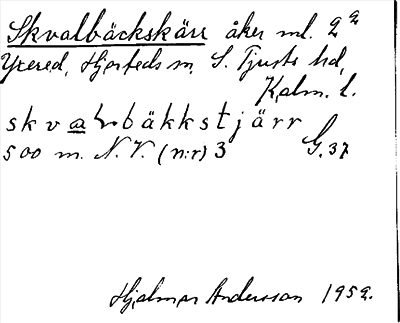 Skvalbäckskärr åker ml. 2ᵃ
Yxered, Hjorteds sn, S. Tjusts hd,
Kalm. l.
skvalbäkkstjärr
500 m. N.V. (n:r) 3 G. 37
Hjalmar Andersson 1952.